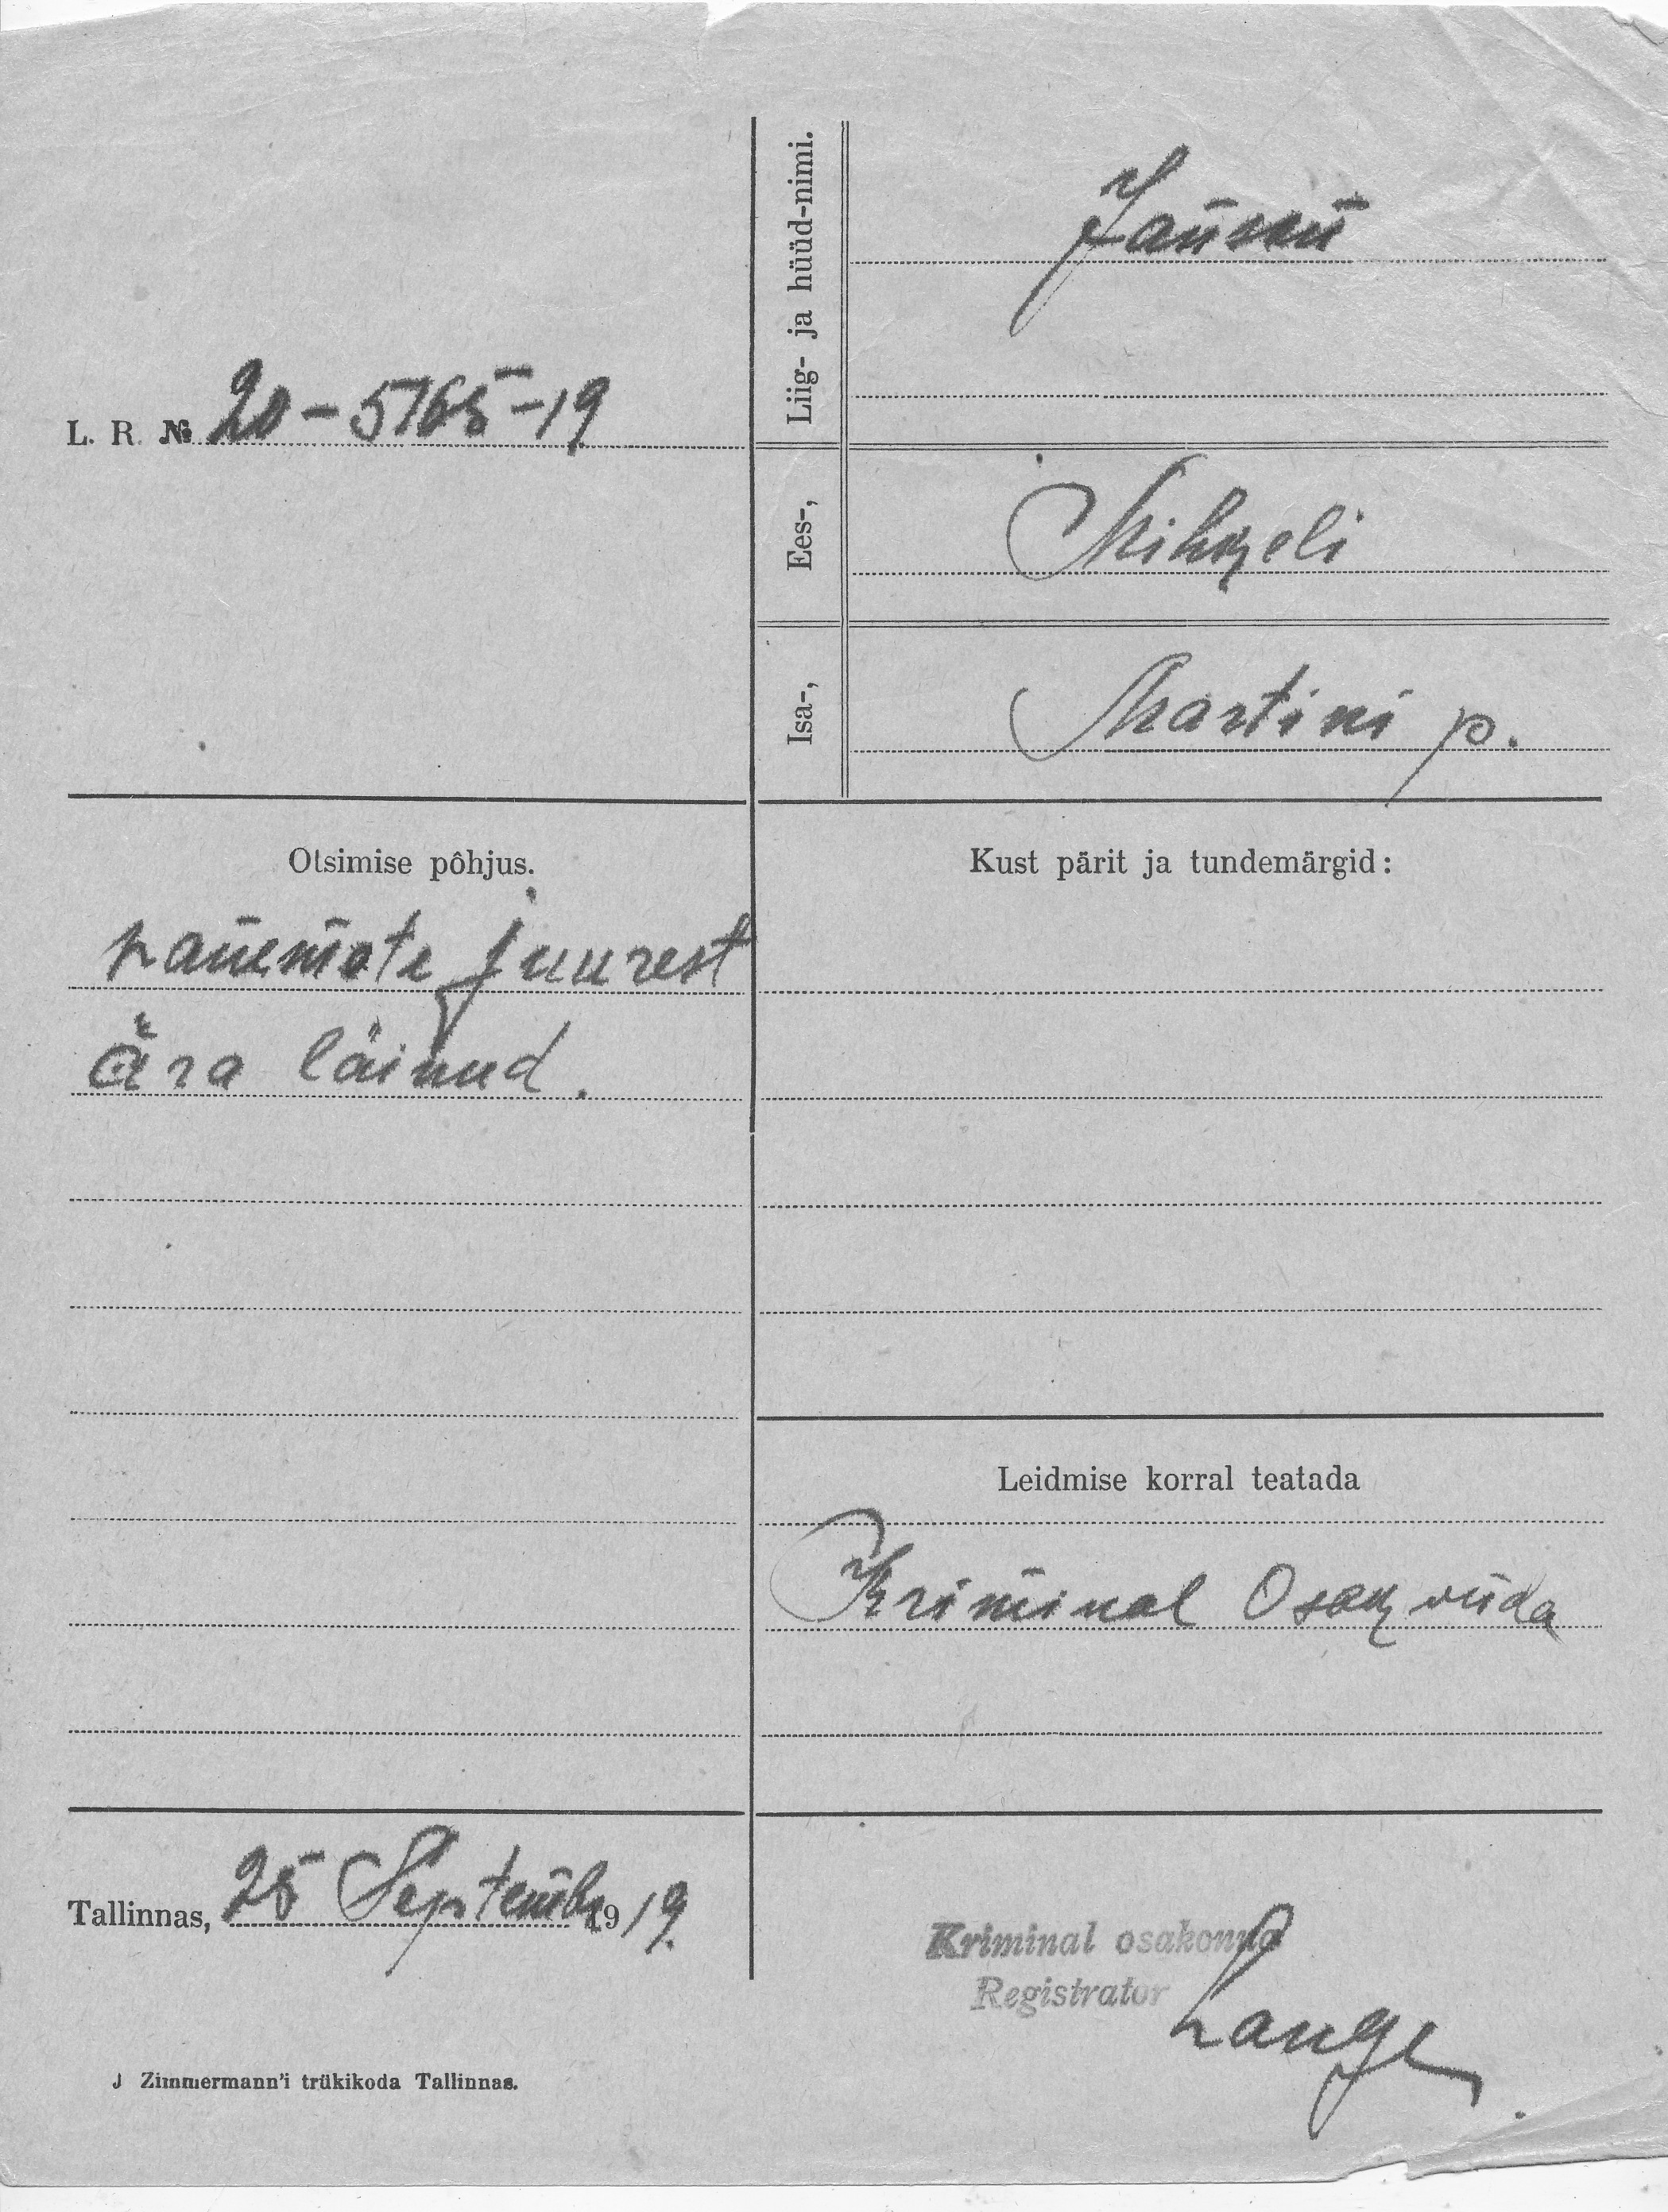 L. R. № 20-5165-19
Liig- ja hüüd-nimi.
Ees-, Mihkeli
Isa-, Martini p.
Otsimise põhjus.
vanemate juurest
ära läinud.
Kust pärit ja tundemärgid:
Leidmise korral teatada
Kriminal
Tallinnas, 25 Septembr 1919.
Kriminal osakonna
Registrator
Lange
J Zimmermann'i trükikoda Tallinnas.